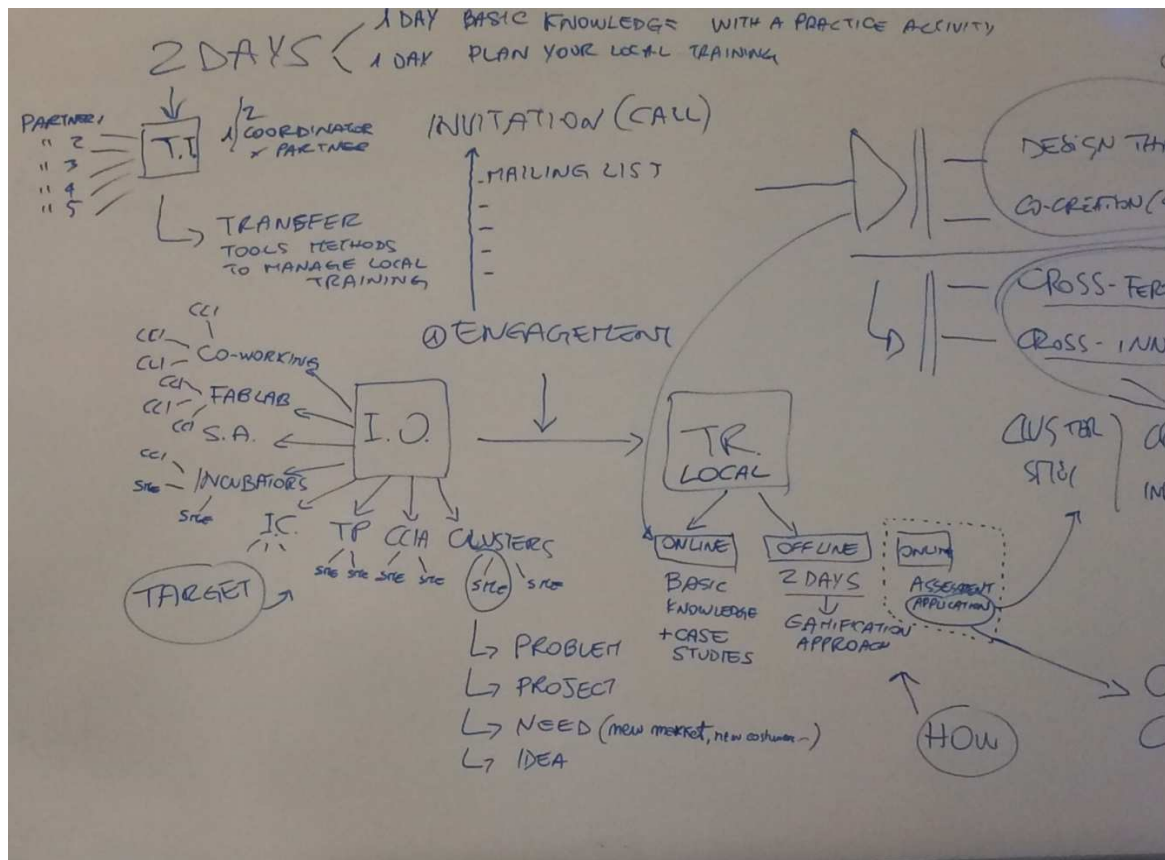 1 DAY BASIC KNOWLEDGE WITH A PRACTICE ACTIVITY
2 DAYS
1 DAY PLAN YOUR LOCAL TRAINING
PARTNER 1
" 2
" 3
" 4
" 5
T.T.
1/2
COORDINATOR
x PARTNER
TRANSFER
TOOLS METHODS
TO MANAGE LOCAL
TRAINING
INVITATION (CALL)
- MAILING LIST
-
-
-
-
① ENGAGEMENT
DESIGN TH
CO-CREATION (
CROSS-FER
CROSS-INN
CLUSTER
CCI
CCI
CCI
CO-WORKING
CCI
CCI
CCI
FABLAB
S.A.
CCI
SME
SME
INCUBATORS
I.C.
TP
SME SME
CCIA
SME SME
CLUSTERS
SME SME
I.O.
TARGET
PROBLEM
PROJECT
NEED (new market, new costumer...)
IDEA
TR.
LOCAL
ONLINE
BASIC
KNOWLEDGE
+ CASE
STUDIES
OFFLINE
2 DAYS
GAMIFICATION
APPROACH
ASSESMENT
APPLICATION
HOW